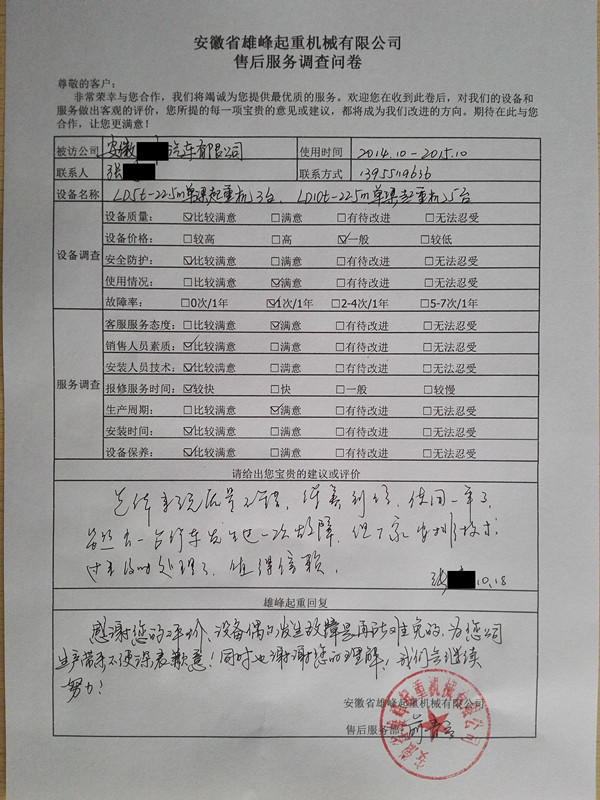 安徽省雄峰起重机械有限公司
售后服务调查问卷
尊敬的客户：
非常荣幸与您合作，我们将竭诚为您提供最优质的服务。欢迎您在收到此卷后，对我们的设备和
服务做出客观的评价，您所提的每一项宝贵的意见或建议，都将成为我们改进的方向。期待在此与您
合作，让您更满意！
被访公司 安徽 汽车有限公司 使用时间 2014.10-2015.10
联系人 张 联系方式
设备名称 LD5t-22.5m单梁起重机3台、LD10t-22.5m单梁起重机5台
设备调查
设备质量： ☑比较满意 □满意 □有待改进 □无法忍受
设备价格： □较高 □高 ☑一般 □较低
安全防护： ☑比较满意 □满意 □有待改进 □无法忍受
使用情况： □比较满意 ☑满意 □有待改进 □无法忍受
故障率： □0次/1年 ☑1次/1年 □2-4次/1年 □5-7次/1年
服务调查
客服服务态度： □比较满意 ☑满意 □有待改进 □无法忍受
销售人员素质： ☑比较满意 □满意 □有待改进 □无法忍受
安装人员技术： ☑比较满意 □满意 □有待改进 □无法忍受
报修服务时间： ☑较快 □快 □一般 □较慢
生产周期： □比较满意 ☑满意 □有待改进 □无法忍受
安装时间： ☑比较满意 □满意 □有待改进 □无法忍受
设备保养： ☑比较满意 □满意 □有待改进 □无法忍受
请给出您宝贵的建议或评价
质量不错，使用一年了，
一台行车发生过一次故障，但厂家安排技术
过来及时处理了，值得信赖。
张 10.18
雄峰起重回复
感谢您的评价、设备偶尔发生故障是再所难免的，为您公司
生产带来不便深表歉意！同时也谢谢您的理解！我们会继续
努力！
安徽省雄峰起重机械有限公司
售后服务部：
安徽省雄峰起重机械有限公司